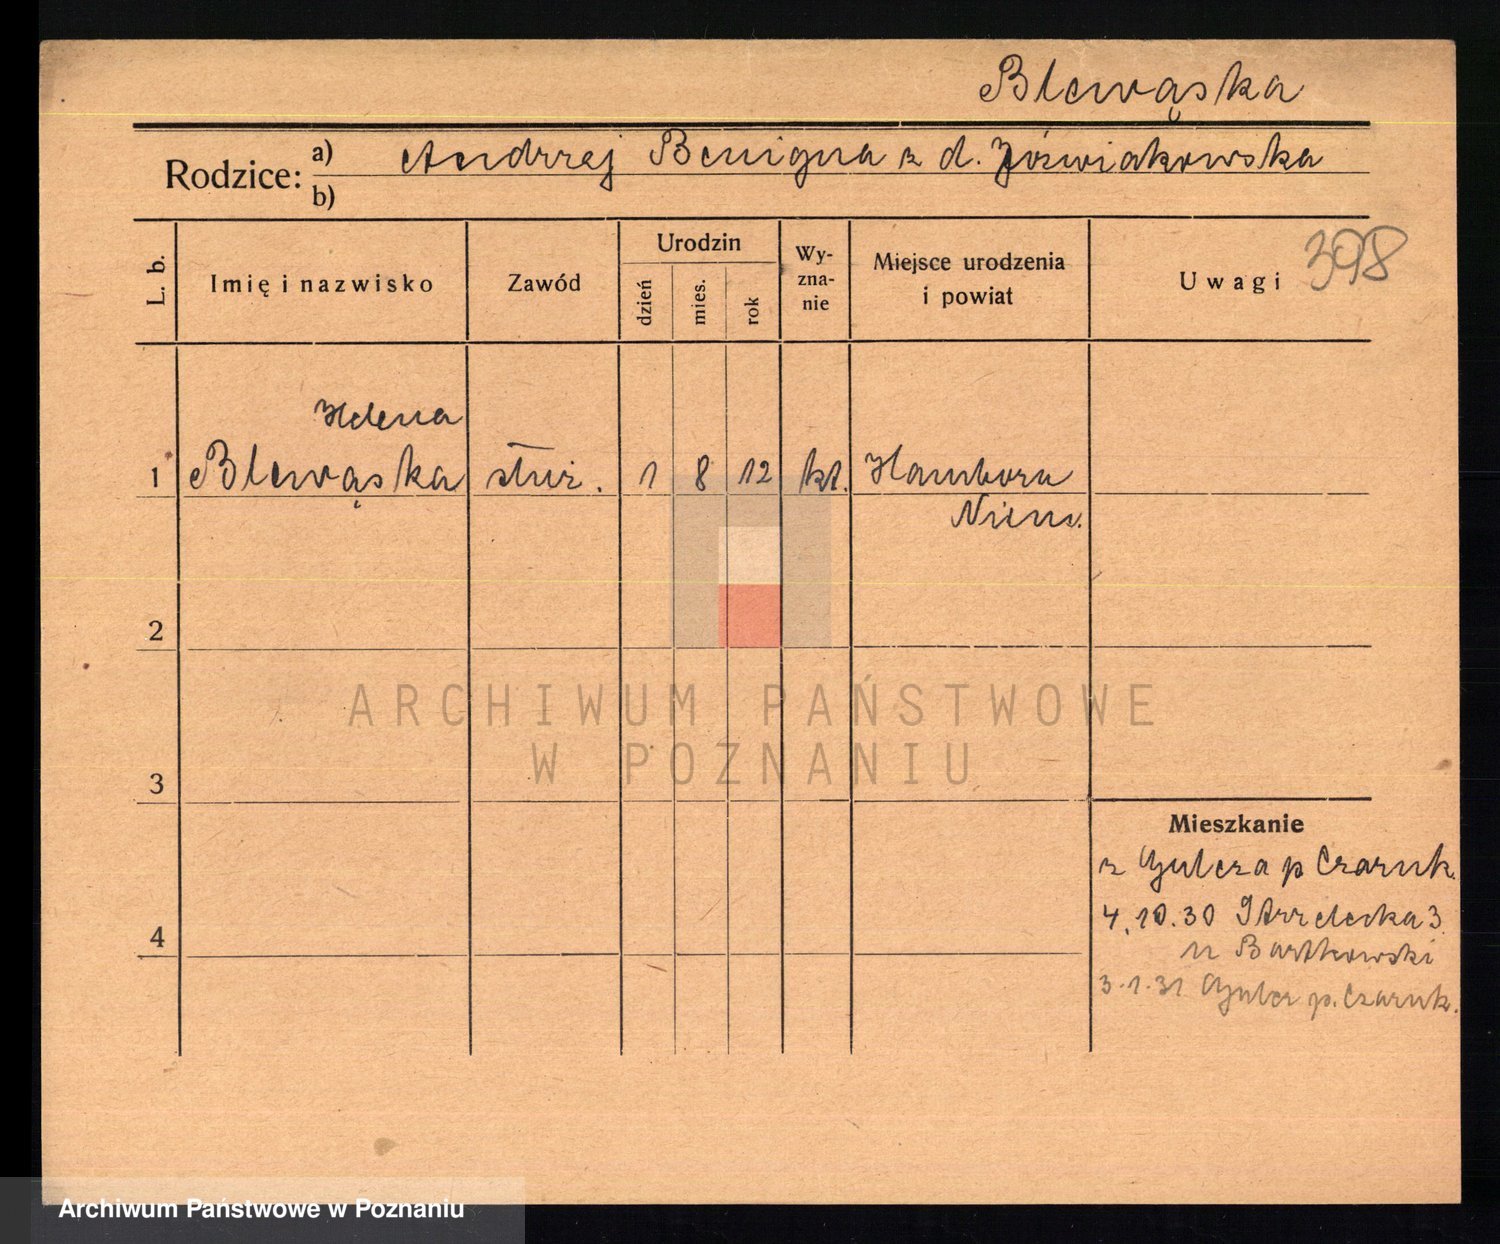 Blewąska
Rodzice: a) Andrzej Benigna z d. Jóźwiakowska
b)
L. b.
Imię i nazwisko
Zawód
Urodzin
dzień
mies.
rok
Wy-
zna-
nie
Miejsce urodzenia
i powiat
Uwagi 398
Helena
1 Blewąska służ. 1 8 12 kt. Hambora
Niem.
2
3
4
Mieszkanie
z Gulcza p Czarnk.
4.10.30 Strzelecka 3.
u Bartkowski
3.1.31 Gulcz p. Czarnk.
ARCHIWUM PAŃSTWOWE
W POZNANIU
Archiwum Państwowe w Poznaniu